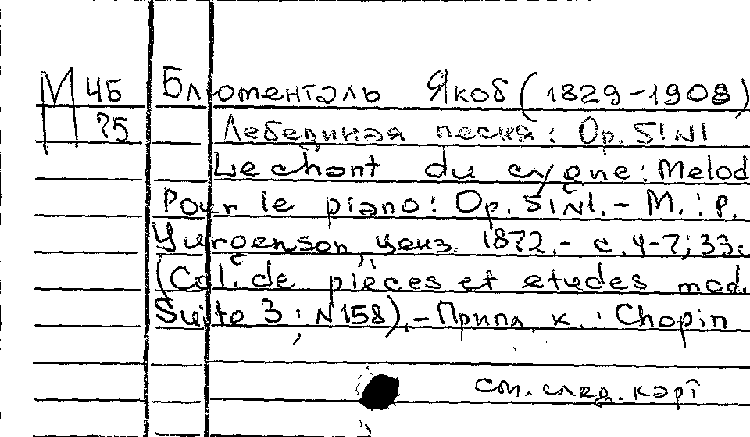 М 45 Блюменталь Якоб (1829-1908)
75 Лебединая песня: Op. 51 N1
Le chant du cygne: Melod
Pour le piano: Op. 51 N1. - M.: P.
Yurgenson, ценз. 1872. - с. 4-7; 33
(Col. de pièces et etudes mod.
Suite 3; N158). - Припл. к.: Chopin
см. след. карт